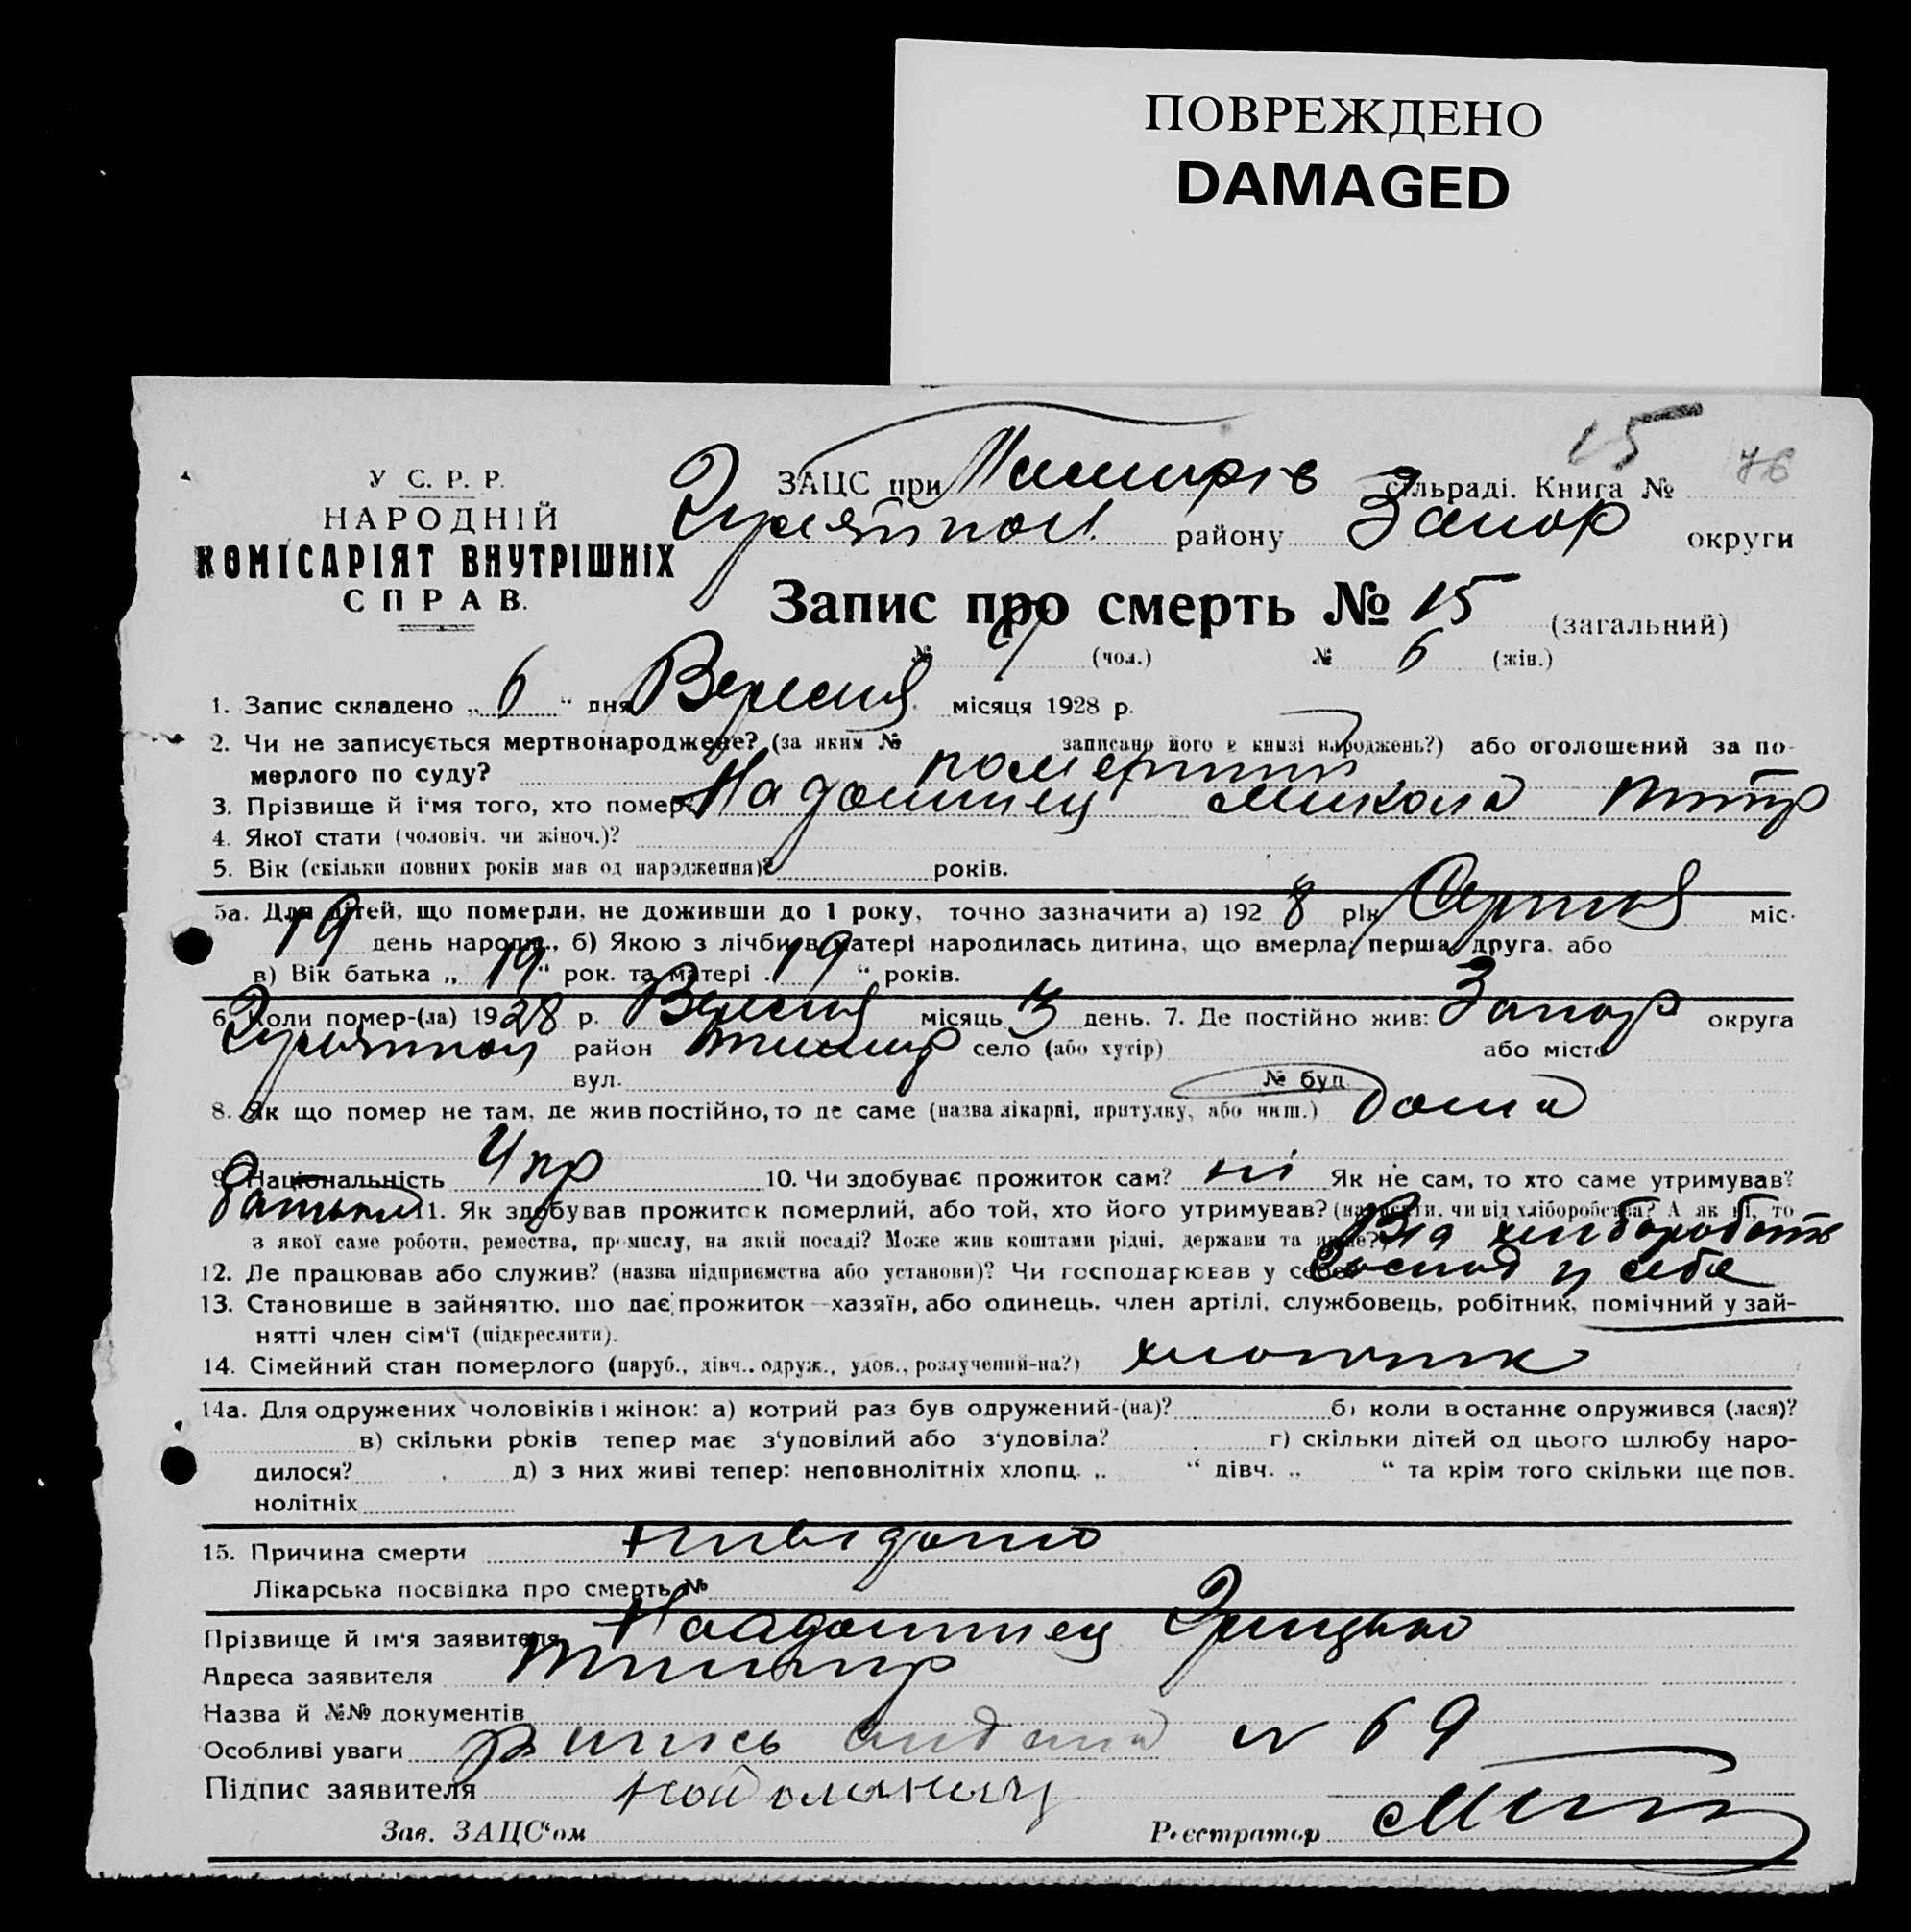 ПОВРЕЖДЕНО
DAMAGED
15
76
У С. Р. Р.
НАРОДНІЙ
КОМІСАРІЯТ ВНУТРІШНІХ
СПРАВ.
ЗАЦС при сільраді. Книга №
району Запор округи
Запис про смерть № 15 (загальний)
№ (чол.) № 6 (жін.)
1. Запис складено „ 6 “ дня Вересня місяця 1928 р.
2. Чи не записується мертвонароджене? (за яким № записано його в книзі народжень?) або оголошений за по-
мерлого по суду? померший
3. Прізвище й ім'я того, хто помер Микола
4. Якої стати (чоловіч. чи жіноч.)?
5. Вік (скільки повних років мав од народження)? років.
5а. Для дітей, що померли, не доживши до 1 року, точно зазначити а) 192 8 рік Серпня міс.
19 день народж., б) Якою з лічби в матері народилась дитина, що вмерла; перша, друга. або
в) Вік батька „ 19 “ рок. та матері „ 19 “ років.
6. Коли помер-(ла) 1928 р. Вересня місяць 3 день. 7. Де постійно жив: Запор округа
район село (або хутір) або місто
вул. № буд.
8. Як що помер не там, де жив постійно, то де саме (назва лікарні, притулку, або инш.) дома
9. Національність Укр 10. Чи здобуває прожиток сам? ні Як не сам, то хто саме утримував?
батько 11. Як здобував прожиток померлий, або той, хто його утримував? (написати, чи від хліборобства? А як ні, то
з якої саме роботи, ремества, промислу, на якій посаді? Може жив коштами рідні, держави та инше?) Від
12. Де працював або служив? (назва підприємства або установи)? Чи господарював у себе у себе
13. Становище в зайняттю, що дає прожиток—хазяїн, або одинець, член артілі, службовець, робітник, помічний у зай-
нятті член сім'ї (підкреслити).
14. Сімейний стан померлого (паруб., дівч., одруж., удов., розлучений-на?) хлопчик
14а. Для одружених чоловіків і жінок: а) котрий раз був одружений-(на)? б) коли востаннє одружився (лася)?
в) скільки років тепер має з'удовілий або з'удовіла? г) скільки дітей од цього шлюбу наро-
дилося? д) з них живі тепер: неповнолітніх хлопц. „ “ дівч. „ “ та крім того скільки ще пов.
нолітніх
15. Причина смерти невідомо
Лікарська посвідка про смерть №
Прізвище й ім'я заявителя Грицько
Адреса заявителя
Назва й №№ документів
Особливі уваги № 69
Підпис заявителя
Зав. ЗАЦС'ом Реєстратор